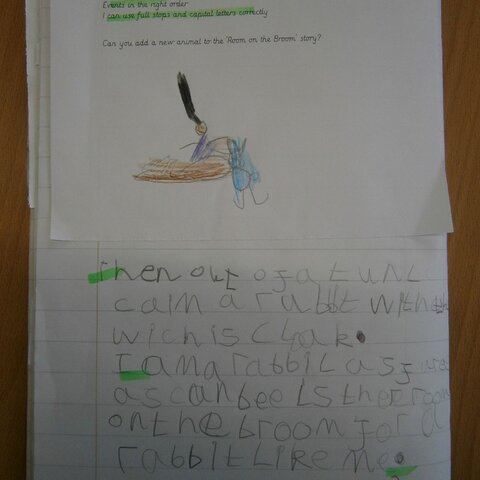 Events in the right order
I can use full stops and capital letters correctly
Can you add a new animal to the 'Room on the Broom' story?
Then out of a tunl
cam a rabbit with the
wich is Cloak.
I am a rabbit as
as can bee is ther room
on the broom for a
rabbit like me.